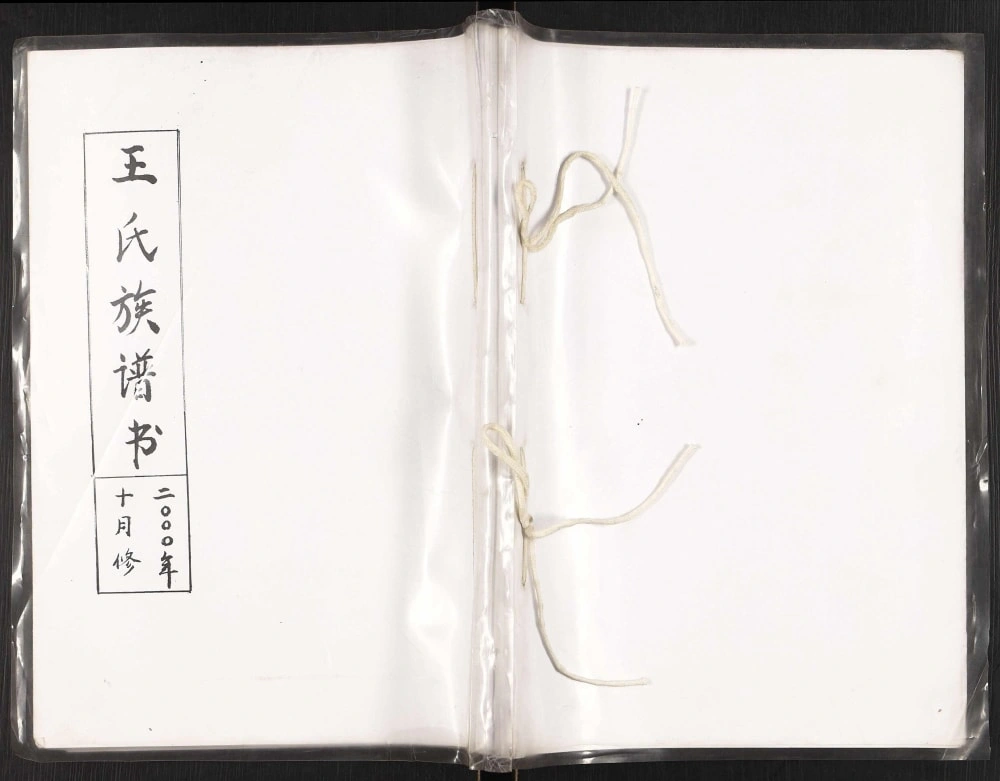 王氏族谱书
二〇〇〇年
十月修